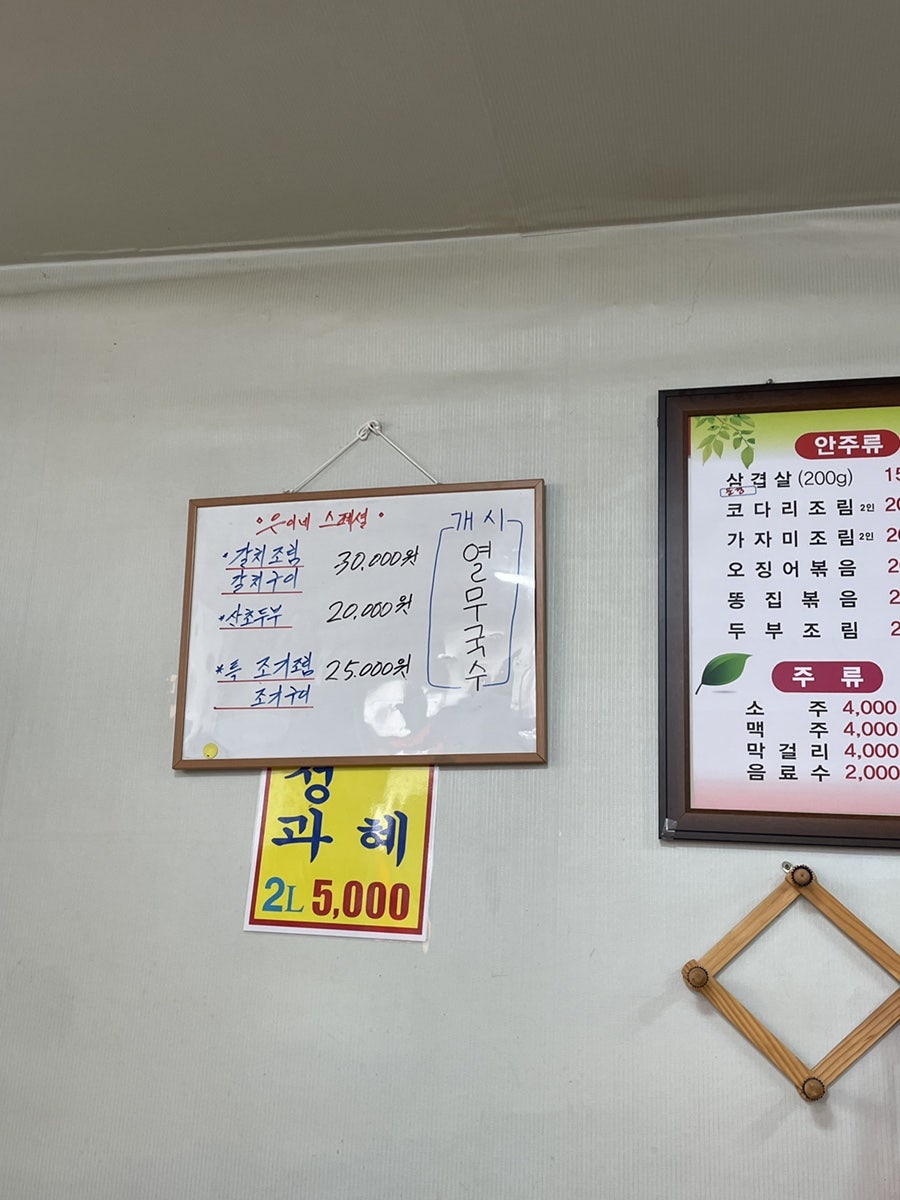 • 웃이네 스페셜 •
• 갈치조림
갈치구이
30.000원
* 산초두부 20,000원
* 특 조기조림 25.000원
조기구이
개시
열무국수
과 혜
2L 5,000
안주류
삼겹살 (200g)
코다리조림 2인
가자미조림 2인
오징어볶음
똥집볶음
두부조림
주 류
소 주 4,000
맥 주 4,000
막걸리 4,000
음료수 2,000